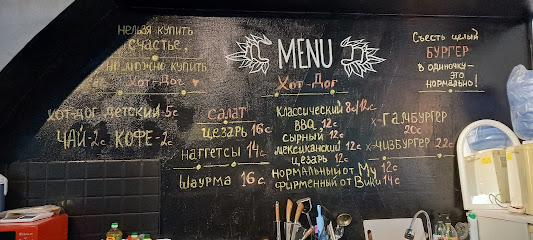 нельзя купить
счастье,
но можно купить
Хот-Дог
MENU
Хот-Дог
Съесть целый
БУРГЕР
в одиночку -
это
нормально!
хот-дог детский 5с
ЧАЙ-2с КОФЕ-2с
САЛАТ
ЦЕЗАРЬ 16с
НАГГЕТСЫ 14с
ШАУРМА 16с
КЛАССИЧЕСКИЙ 8с/12с
BBQ 12с
СЫРНЫЙ 12с
МЕКСИКАНСКИЙ 12с
ЦЕЗАРЬ 12с
НОРМАЛЬНЫЙ ОТ Му 12с
ФИРМЕННЫЙ ОТ Вики 14с
х-ГАМБУРГЕР
20с
х-ЧИЗБУРГЕР 22с